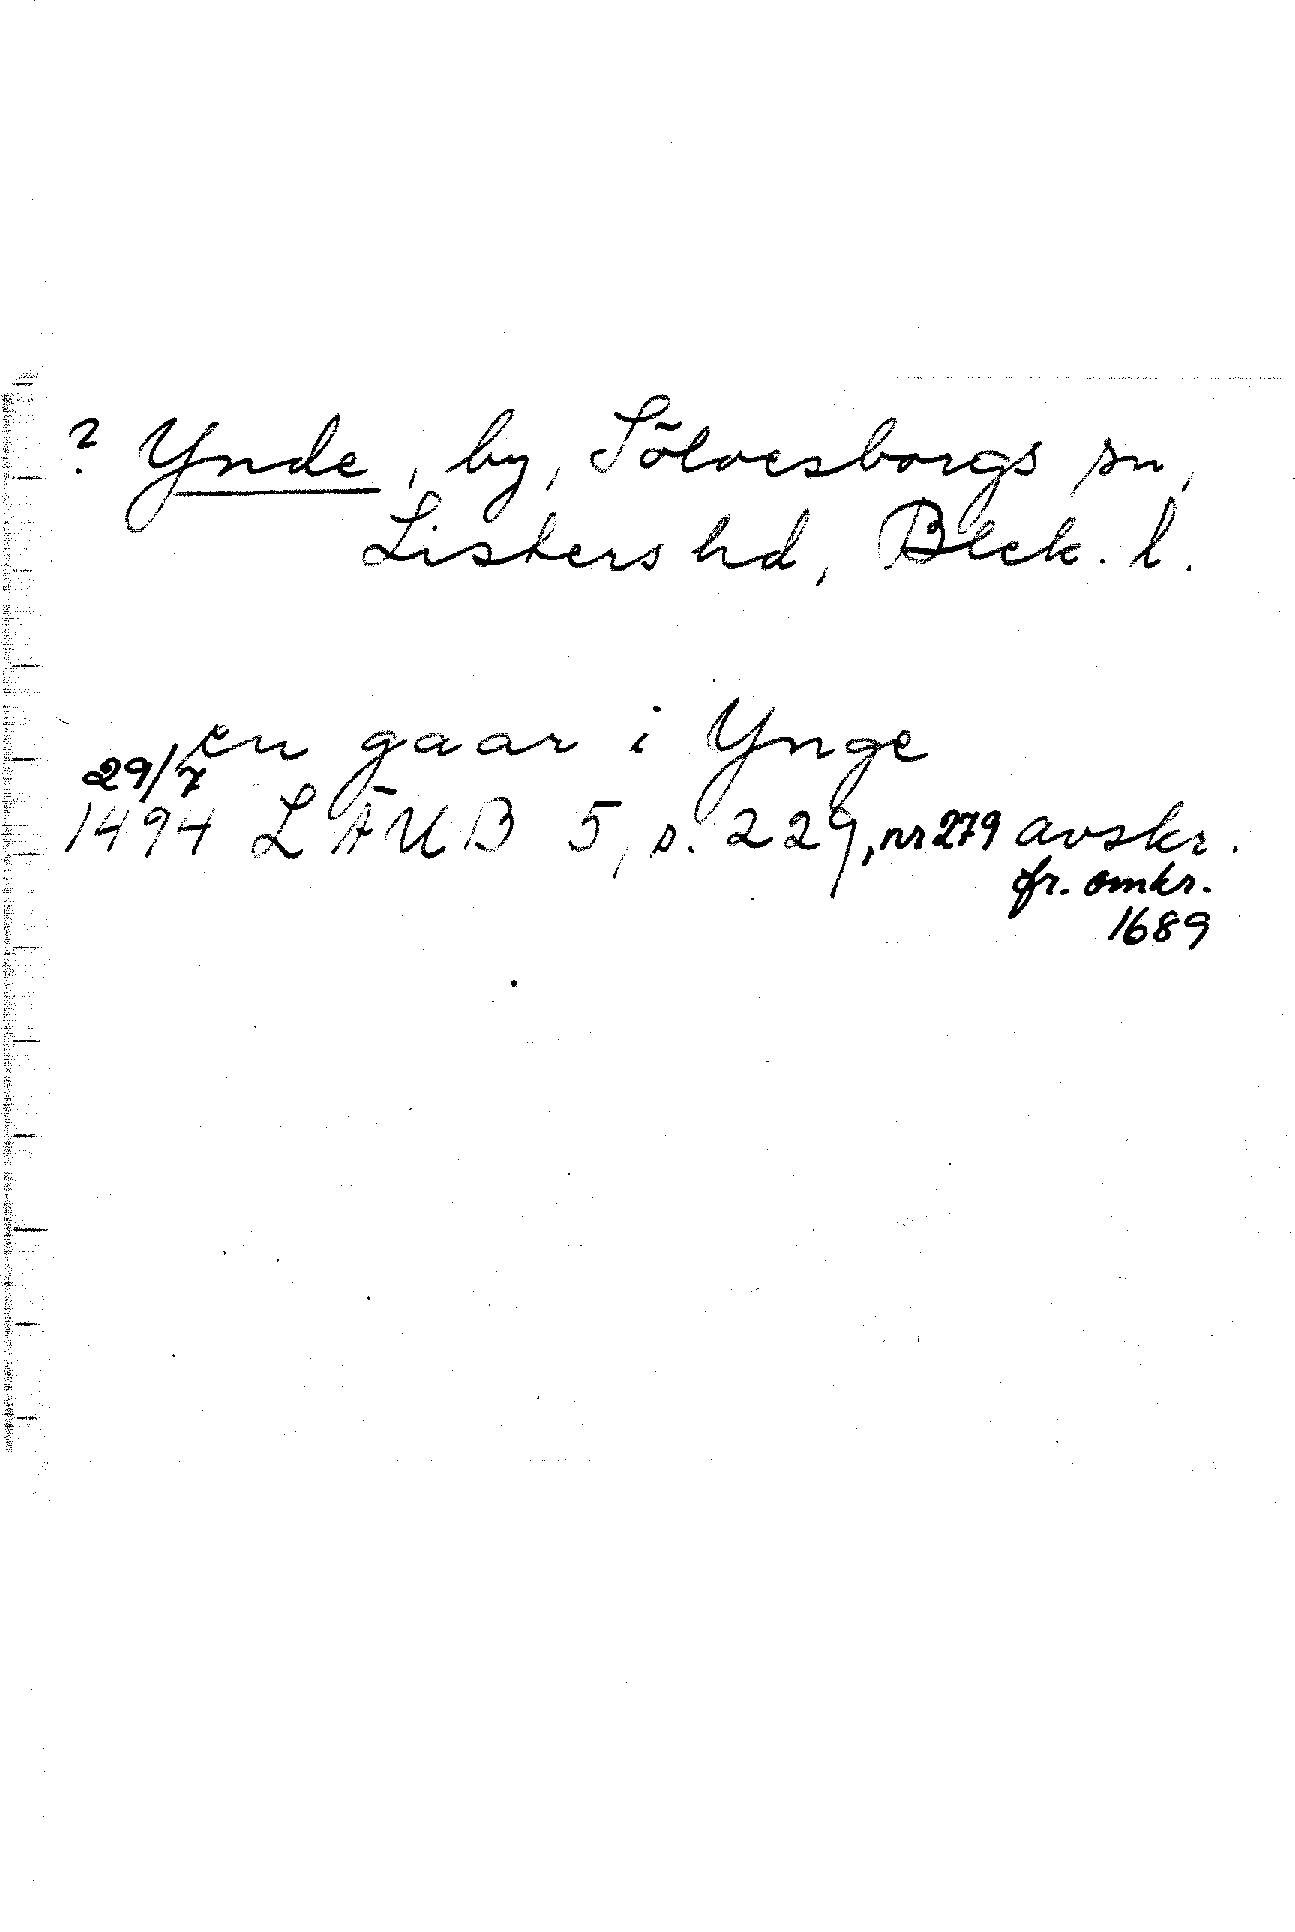 ? Ynde, by, Sölvesborgs sn,
Listers hd, Blek. l.
en gaar i Ynge
29/7
1494 LÄUB 5, s. 229, nr 279 avskr.
fr. omkr.
1689